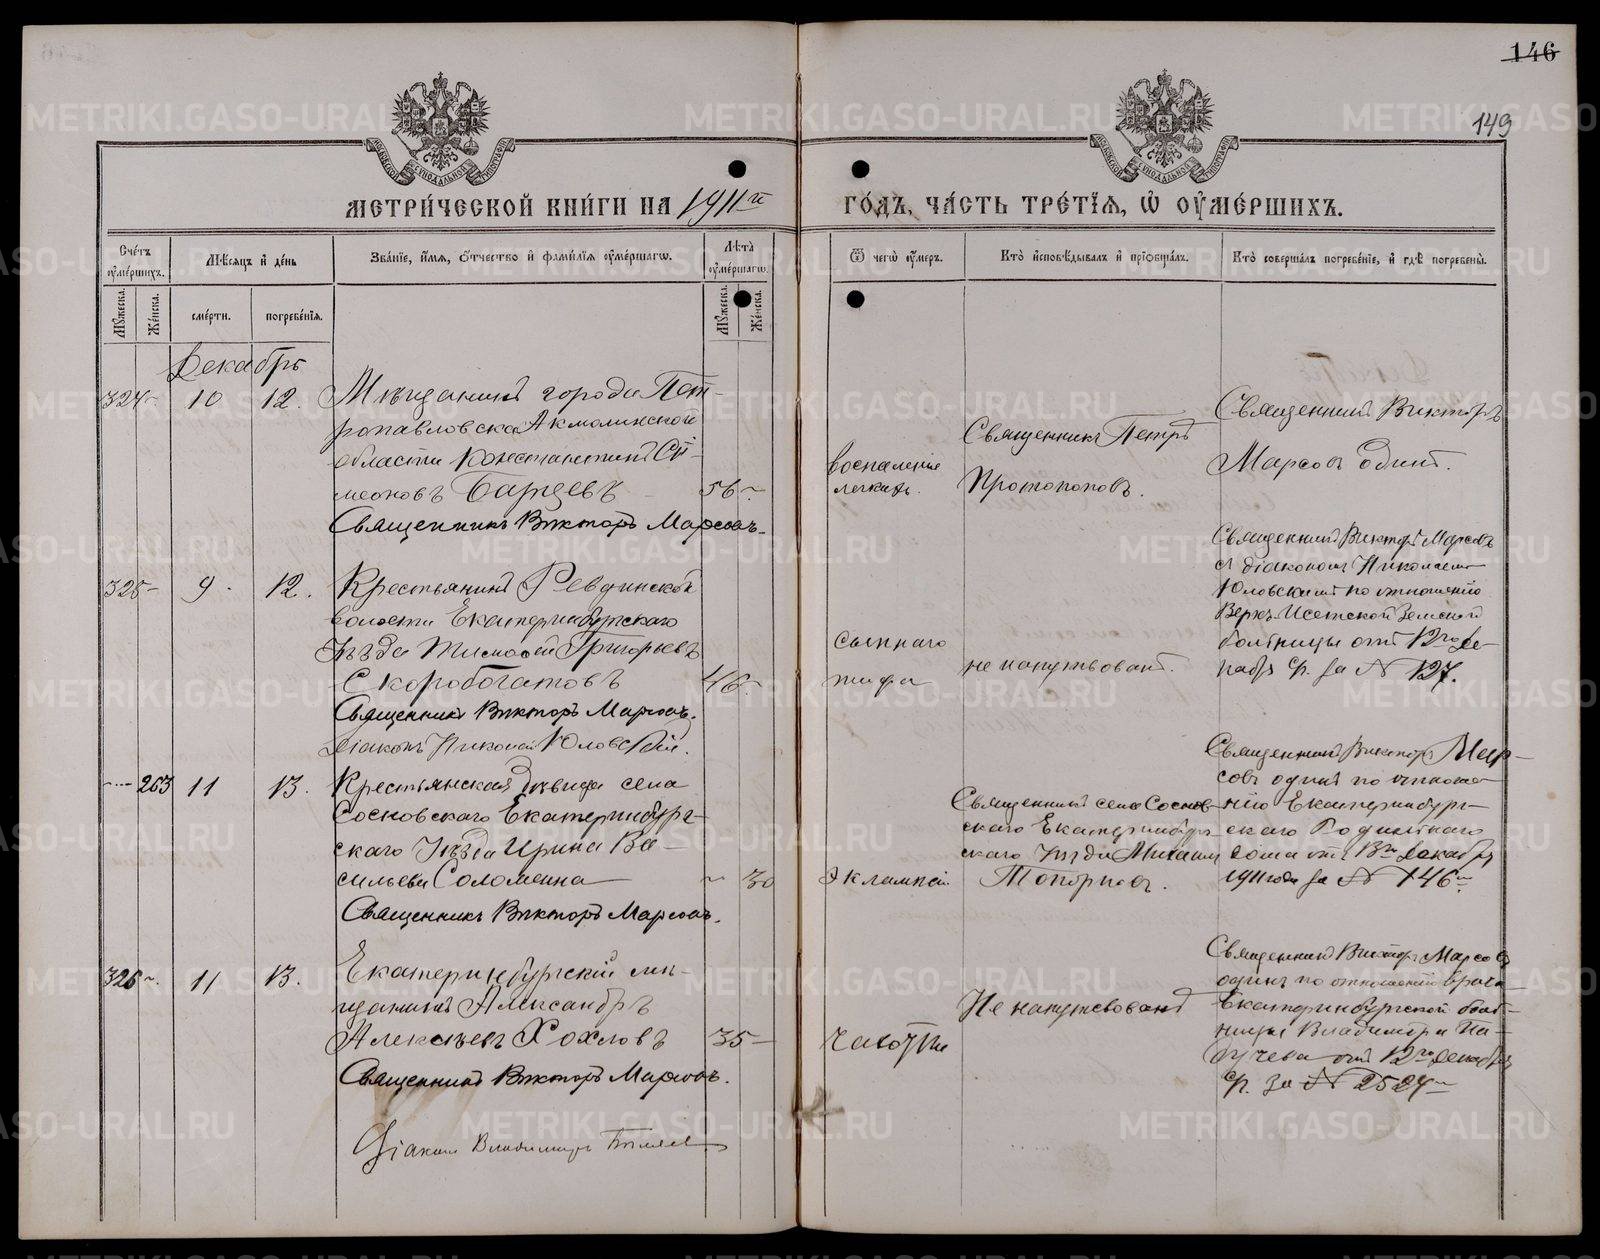 146
149
МЕТРИ́ЧЕСКОЙ КНИ́ГИ НА 1911й ГО́ДЪ, ЧА́СТЬ ТРЕ́ТІЯ, Ѡ ОУМЕ́РШИХЪ.
Сче́тъ оумéршихъ.
Мѣсяцъ и де́нь
Зва́ніе, и́мя, о́тчество и фами́лія оуме́ршагѡ.
Лѣта̀ оуме́ршагѡ.
Ѿ чегѡ̀ оу́меръ.
Кто̀ исповѣ́дывалъ и пріобща́лъ.
Кто̀ соверша́лъ погребе́ніе, и гдѣ̀ погребены̀.
Му́жеска.
Же́нска.
сме́рти.
погребе́нія.
Му́жеска.
Же́нска.
Декабрь
324
10
12.
Мѣщанинъ города Пет-
ропавловска Акмолинской
области Константинъ Си-
меоновъ
56
Священникъ Викторъ Марсовъ.
воспаленіе
легкихъ.
Священникъ Петръ
Протопоповъ.
Священникъ Викторъ
Марсовъ одинъ.
325
9
12.
Крестьянинъ Ревдинской
волости Екатеринбургскаго
Уѣзда Тимофей Григорьевъ
Скоробогатовъ
46
Священникъ Викторъ Марсовъ.
Діаконъ Николай Юловскій.
сыпнаго
тифа
не напутствованъ.
Священникъ Викторъ Марсовъ
съ діакономъ Николаемъ
Юловскимъ по отношенію
Верхъ-Исетской Земской
больницы отъ 12го де-
кабря с/г. за № 127.
263
11
13.
Крестьянская дѣвица села
Сосновскаго Екатеринбург-
скаго Уѣзда Ирина Ва-
сильева Соломеина
30
Священникъ Викторъ Марсовъ.
Эклампсіи
Священникъ села Соснов-
скаго Екатеринбург-
скаго Уѣзда Михаилъ
Топорковъ.
Священникъ Викторъ Мар-
совъ одинъ по отноше-
нію Екатеринбург-
скаго Родильнаго
дома отъ 13го декабря
1911 года за № 146
326
11
13.
Екатеринбургскій мѣ-
щанинъ Александръ
Алексѣевъ Хохловъ
35
Священникъ Викторъ Марсовъ.
Чахотки
Не напутствованъ
Священникъ Викторъ Марсовъ
одинъ по отношенію врача
Екатеринбургской боль-
ницы Владиміра
отъ 12го декабря
с/г. за № 2524
Діаконъ Владимиръ